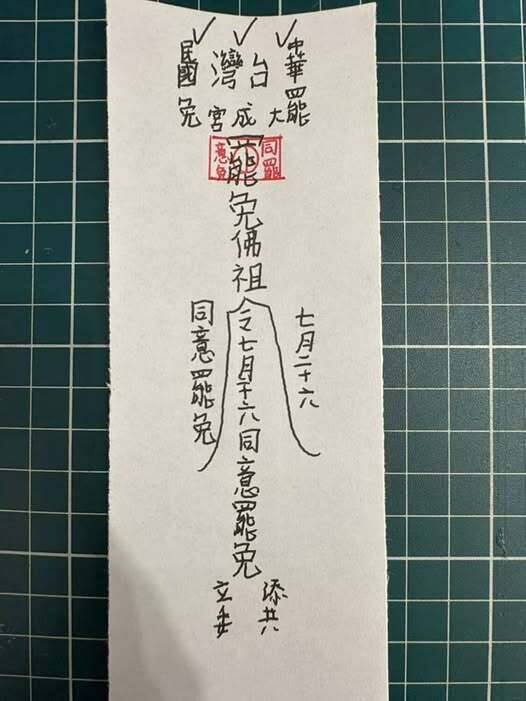 中華
台灣
民國
罷免
大成宮
同罷
意免
罷免佛祖
令七月廿六同意罷免
七月二十六
同意罷免
添共
立委